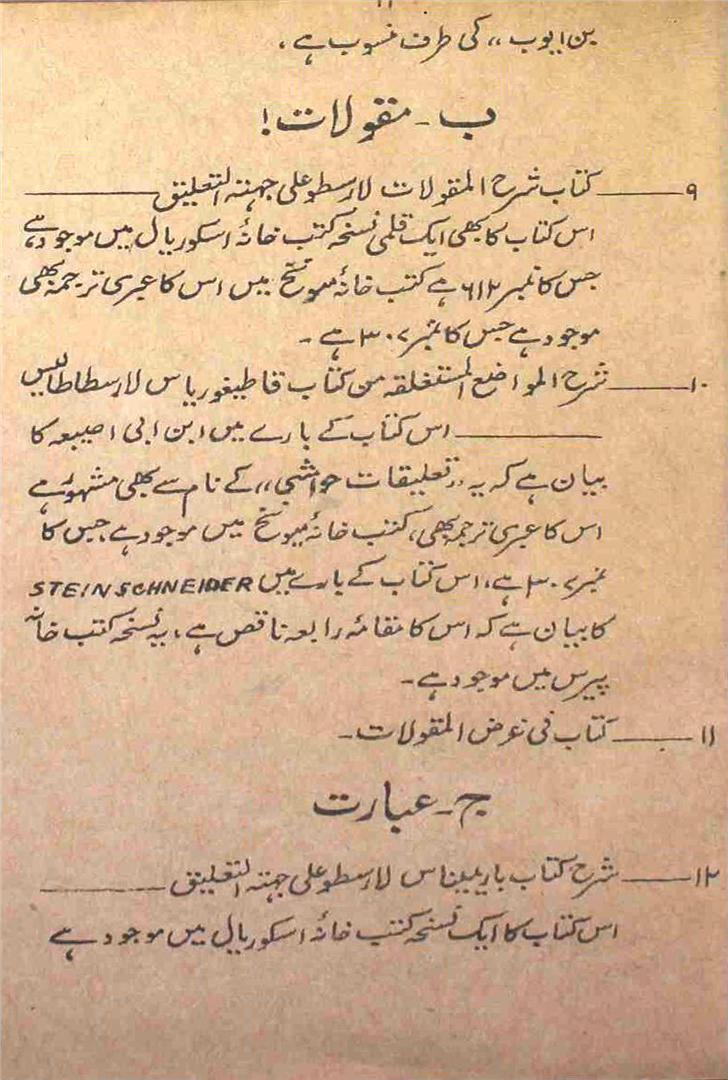 بن ایوب،، کی طرف منسوب ہے ۔
ب ۔ مقولات !
۹ــــــ کتاب شرح المقولات لارسطو علی جہتہ التعلیق ــــــ
اس کتاب کا بھی ایک قلمی نسخہ کتب خانۂ اسکوریال میں موجود ہے
جس کا نمبر ۶۱۲ ہے کتب خانۂ میونخ میں اس کا عبری ترجمہ بھی
موجود ہے جس کا نمبر ۳۰۷ ہے ۔
۱۰ــــــ شرح المواضع المستغلقہ من کتاب قاطیغوریاس لارسطاطالیس
ــــــ اس کتاب کے بارے میں ابن ابی اصیبعہ کا
بیان ہے کہ یہ ,,تعلیقات حواشی،، کے نام سے بھی مشہور ہے
اس کا عبری ترجمہ بھی، کتب خانۂ میونخ میں موجود ہے جس کا
نمبر ۳۰۷ ہے، اس کتاب کے بارے میں STEINSCHNEIDER
کا بیان ہے کہ اس کا مقامہ رابعہ ناقص ہے، یہ نسخہ کتب خانہ
پیرس میں موجود ہے ۔
۱۱ــــــ کتاب فی غرض المقولات ۔
ج ۔ عبارت
۱۲ــــــ شرح کتاب باریمیناس لارسطو علی جہتہ التعلیق ــــــ
اس کتاب کا ایک نسخہ کتب خانۂ اسکوریال میں موجود ہے